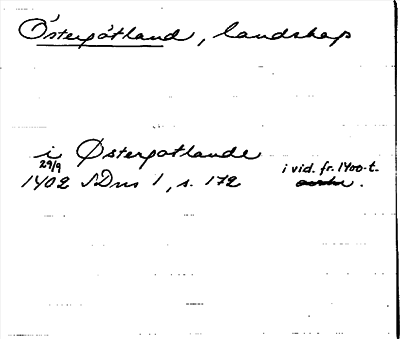 Östergötland, landskap
i Østergotlande
29/9
1402 SDns 1, s. 172 i vid. fr. 1400-t.